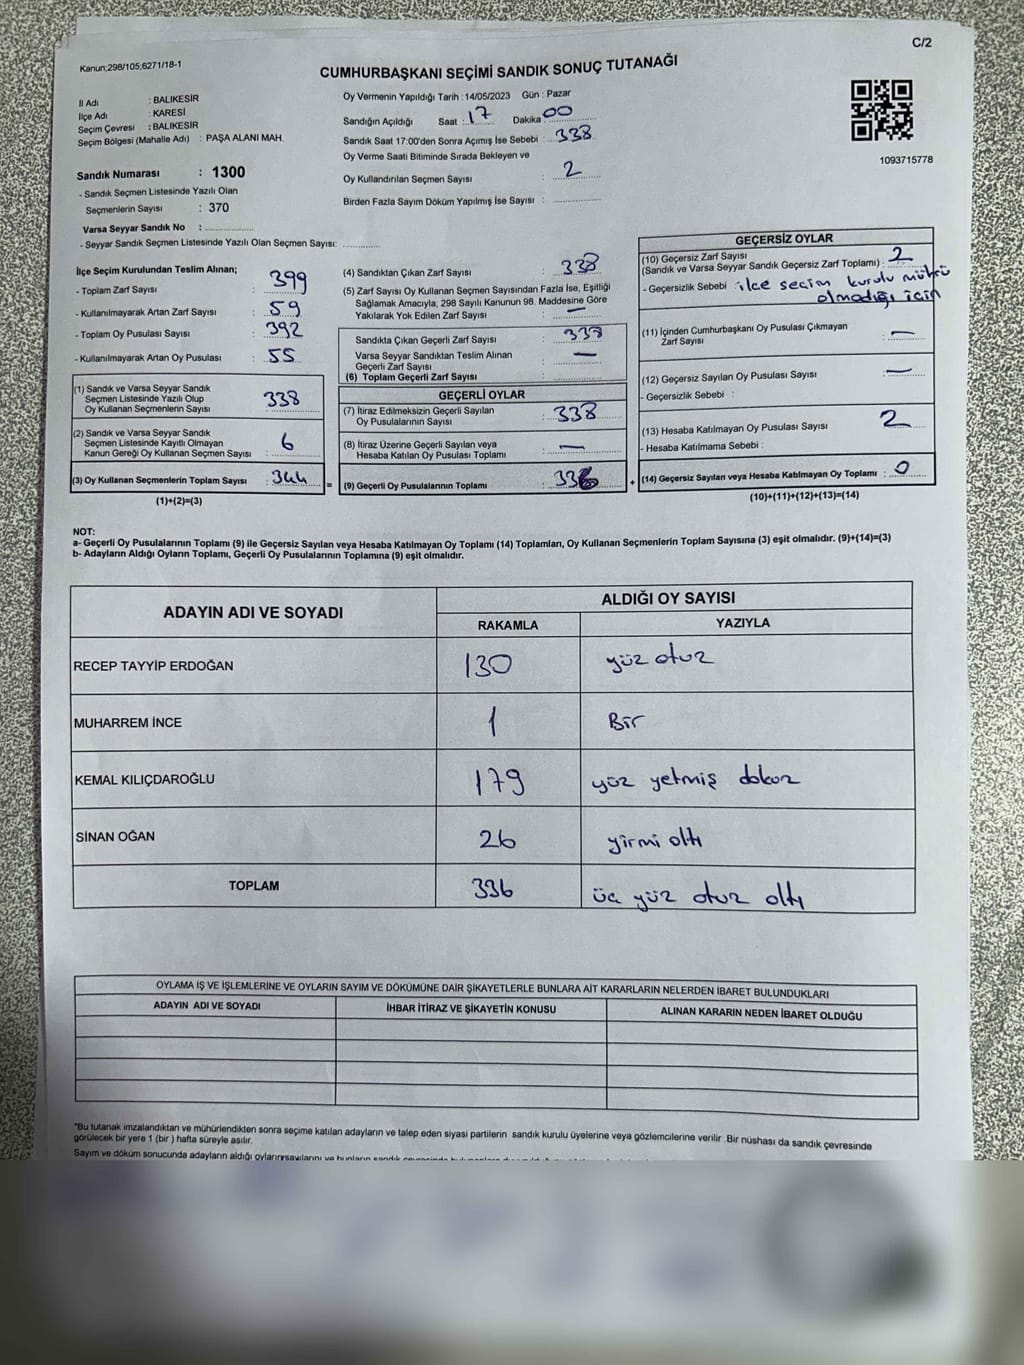 C/2
Kanun:298/105;6271/18-1
CUMHURBAŞKANI SEÇİMİ SANDIK SONUÇ TUTANAĞI
İl Adı : BALIKESİR
İlçe Adı : KARESİ
Seçim Çevresi : BALIKESİR
Seçim Bölgesi (Mahalle Adı) : PAŞA ALANI MAH.
Sandık Numarası : 1300
- Sandık Seçmen Listesinde Yazılı Olan
Seçmenlerin Sayısı : 370
Varsa Seyyar Sandık No :
- Seyyar Sandık Seçmen Listesinde Yazılı Olan Seçmen Sayısı:
Oy Vermenin Yapıldığı Tarih : 14/05/2023 Gün : Pazar
Sandığın Açıldığı Saat : 17 Dakika : 00
Sandık Saat 17:00'den Sonra Açımış İse Sebebi : 338
Oy Verme Saati Bitiminde Sırada Bekleyen ve
Oy Kullandırılan Seçmen Sayısı : 2
Birden Fazla Sayım Döküm Yapılmış İse Sayısı :
1093715778
İlçe Seçim Kurulundan Teslim Alınan;
- Toplam Zarf Sayısı : 399
- Kullanılmayarak Artan Zarf Sayısı : 59
- Toplam Oy Pusulası Sayısı : 392
- Kullanılmayarak Artan Oy Pusulası : 55
(1) Sandık ve Varsa Seyyar Sandık
Seçmen Listesinde Yazılı Olup
Oy Kullanan Seçmenlerin Sayısı : 338
(2) Sandık ve Varsa Seyyar Sandık
Seçmen Listesinde Kayıtlı Olmayan
Kanun Gereği Oy Kullanan Seçmen Sayısı : 6
(3) Oy Kullanan Seçmenlerin Toplam Sayısı : 344 =
(1)+(2)=(3)
(4) Sandıktan Çıkan Zarf Sayısı : 338
(5) Zarf Sayısı Oy Kullanan Seçmen Sayısından Fazla İse, Eşitliği
Sağlamak Amacıyla; 298 Sayılı Kanunun 98. Maddesine Göre
Yakılarak Yok Edilen Zarf Sayısı : —
Sandıkta Çıkan Geçerli Zarf Sayısı : 338
Varsa Seyyar Sandıktan Teslim Alınan
Geçerli Zarf Sayısı : —
(6) Toplam Geçerli Zarf Sayısı :
GEÇERLİ OYLAR
(7) İtiraz Edilmeksizin Geçerli Sayılan
Oy Pusulasının Sayısı : 338
(8) İtiraz Üzerine Geçerli Sayılan veya
Hesaba Katılan Oy Pusulası Toplamı : —
(9) Geçerli Oy Pusulalarının Toplamı : 336 +
GEÇERSİZ OYLAR
(10) Geçersiz Zarf Sayısı
(Sandık ve Varsa Seyyar Sandık Geçersiz Zarf Toplamı) : 2
- Geçersizlik Sebebi : ilce secim kurulu mührü
olmadığı için
(11) İçinden Cumhurbaşkanı Oy Pusulası Çıkmayan
Zarf Sayısı : —
(12) Geçersiz Sayılan Oy Pusulası Sayısı : —
- Geçersizlik Sebebi :
(13) Hesaba Katılmayan Oy Pusulası Sayısı : 2
- Hesaba Katılmama Sebebi :
(14) Geçersiz Sayılan veya Hesaba Katılmayan Oy Toplamı : 0
(10)+(11)+(12)+(13)=(14)
NOT:
a- Geçerli Oy Pusulalarının Toplamı (9) ile Geçersiz Sayılan veya Hesaba Katılmayan Oy Toplamı (14) Toplamları, Oy Kullanan Seçmenlerin Toplam Sayısına (3) eşit olmalıdır. (9)+(14)=(3)
b- Adayların Aldığı Oyların Toplamı, Geçerli Oy Pusulalarının Toplamına (9) eşit olmalıdır.
ADAYIN ADI VE SOYADI
ALDIĞI OY SAYISI
RAKAMLA YAZIYLA
RECEP TAYYİP ERDOĞAN 130 yüz otuz
MUHARREM İNCE 1 Bir
KEMAL KILIÇDAROĞLU 179 yüz yetmiş dokuz
SİNAN OĞAN 26 yirmi altı
TOPLAM 336 üç yüz otuz altı
OYLAMA İŞ VE İŞLEMLERİNE VE OYLARIN SAYIM VE DÖKÜMÜNE DAİR ŞİKAYETLERLE BUNLARA AİT KARARLARIN NELERDEN İBARET BULUNDUKLARI
ADAYIN ADI VE SOYADI İHBAR İTİRAZ VE ŞİKAYETİN KONUSU ALINAN KARARIN NEDEN İBARET OLDUĞU
*Bu tutanak imzalandıktan ve mühürlendikten sonra seçime katılan adayların ve talep eden siyasi partilerin sandık kurulu üyelerine veya gözlemcilerine verilir. Bir nüshası da sandık çevresinde
görülecek bir yere 1 (bir ) hafta süreyle asılır.
Sayım ve döküm sonucunda adayların aldığı oyların